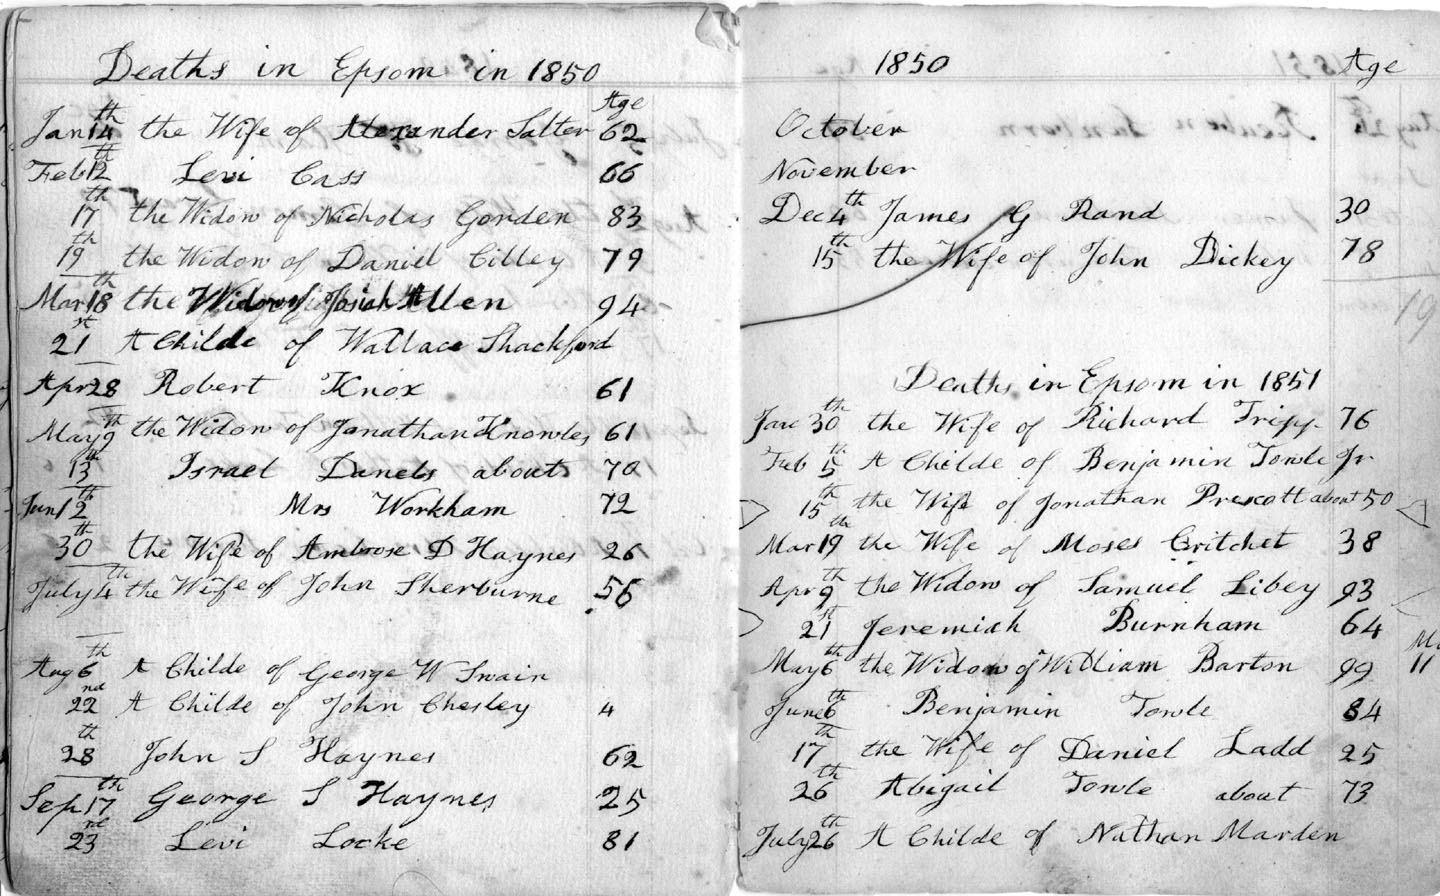 Deaths in Epsom in 1850
Age
Jan 14th the Wife of Alexander Salter 62
Feb 12th Levi Cass 66
17th the Widow of Nicholas Gorden 83
19th the Widow of Daniel Cilley 79
Mar 18th the Widow of Josiah Allen 94
21st A Childe of Wallace Shackford
Apr 28 Robert Knox 61
May 9th the Widow of Jonathan Knowles 61
13th Israel Danels about 70
Jun 12th Mrs Workham 72
30th the Wife of Ambrose D Haynes 26
July 4th the Wife of John Sherburne 56
Aug 6th A Childe of George W Swain
22nd A Childe of John Chesley 4
28th John S Haynes 62
Sep 17th George S Haynes 25
23rd Levi Locke 81
1850 Age
October
November
Dec 4th James G Rand 30
15th the Wife of John Dickey 78
19
Deaths in Epsom in 1851
Jan 30th the Wife of Richard Tripp 76
Feb 5th A Childe of Benjamin Towle Jr
15th the Wife of Jonathan Prescott about 50
Mar 19th the Wife of Moses Critchet 38
Apr 9th the Widow of Samuel Libey 93
21st Jeremiah Burnham 64
May 6th the Widow of William Barton 99
11
June 6th Benjamin Towle 84
17th the Wife of Daniel Ladd 25
26th Abigail Towle about 73
July 26th A Childe of Nathan Marden